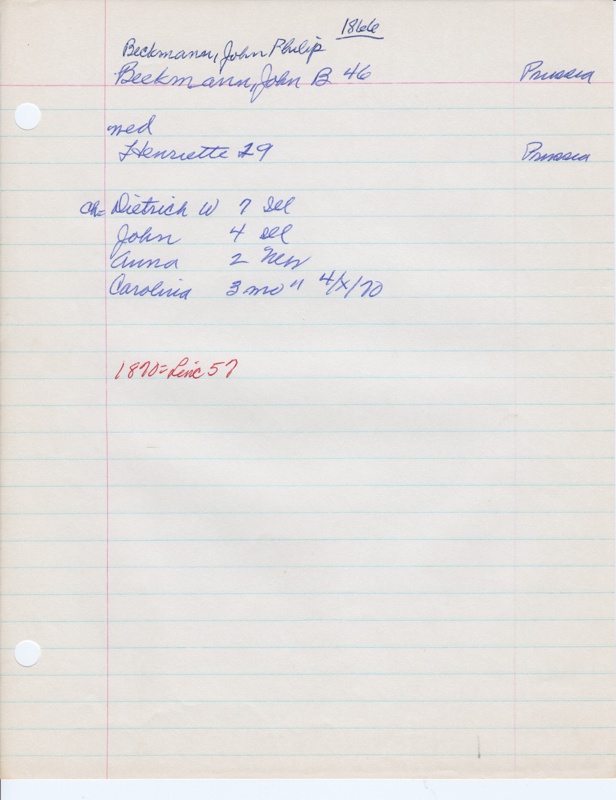 1866
Beckmann, John Philip
Beekmann, John B 46 Prussia
med
Henriette 29 Prussia
Ch= Dietrich W 7 Ill
John 4 Ill
Anna 2 Neb
Carolina 3 mo " 4/X/70
1870= Linc 57